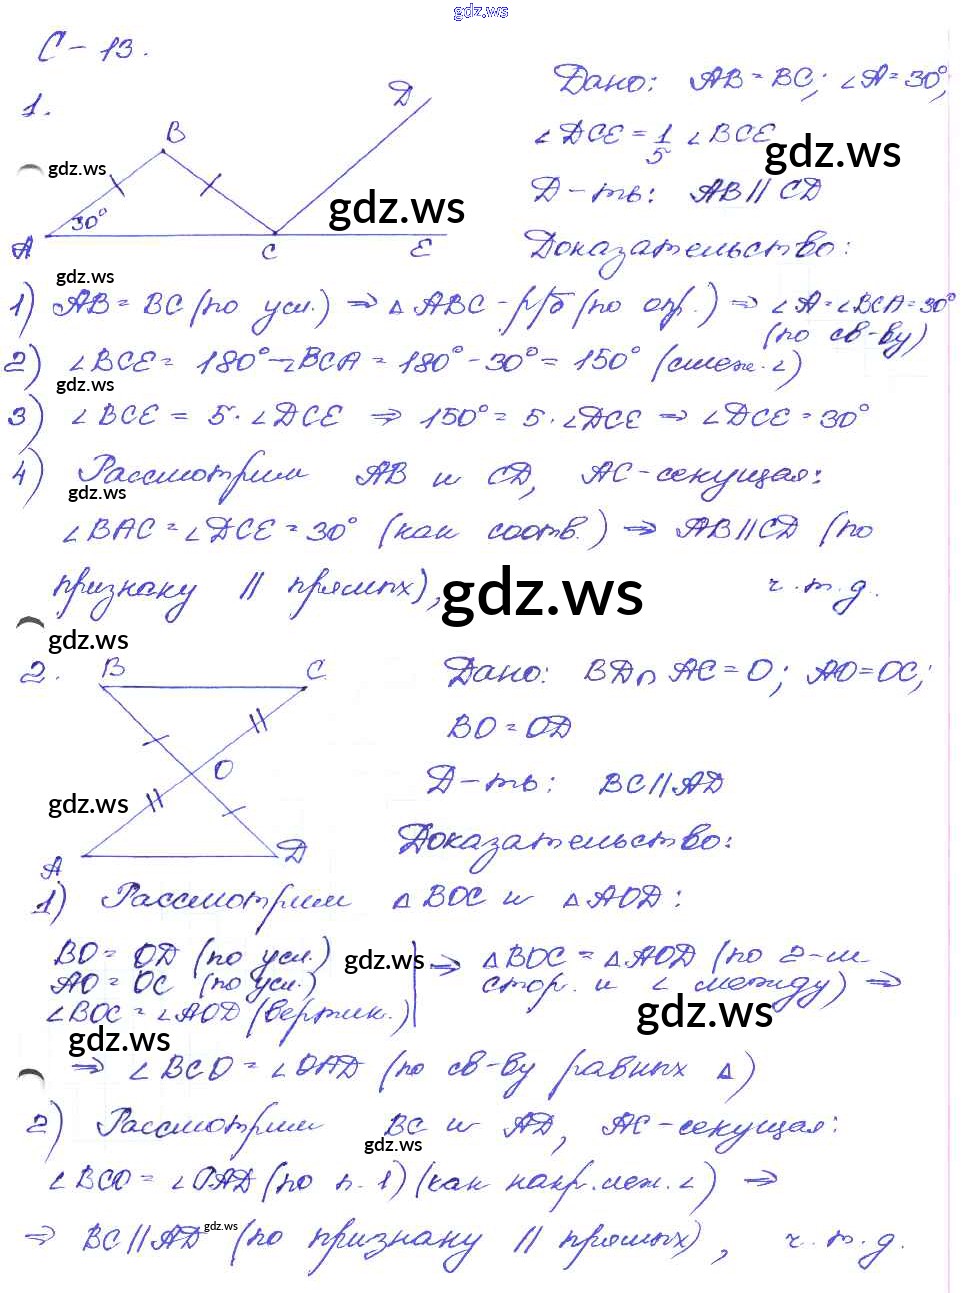 gdz.ws
С-13.
1.
B
D
30°
A
C
E
Дано: AB = BC; ∠A = 30°,
∠DCE = 1/5 ∠BCE
gdz.ws
gdz.ws
gdz.ws
Д-ть: AB || CD
Доказательство:
gdz.ws
1) AB = BC (по усл.) ⇒ △ ABC - р/б (по опр.) ⇒ ∠A = ∠BCA = 30°
(по св-ву)
2) ∠BCE = 180° - ∠BCA = 180° - 30° = 150° (смеж. ∠)
gdz.ws
3) ∠BCE = 5 · ∠DCE ⇒ 150° = 5 · ∠DCE ⇒ ∠DCE = 30°
4) Рассмотрим AB и CD, AC - секущая:
gdz.ws
∠BAC = ∠DCE = 30° (как соотв.) ⇒ AB || CD (по
признаку || прямых), ч.т.д.
gdz.ws
gdz.ws
2.
B
C
O
A
D
Дано: BD ∩ AC = O; AO = OC;
BO = OD
Д-ть: BC || AD
gdz.ws
Доказательство:
1) Рассмотрим △ BOC и △ AOD:
BO = OD (по усл.)
AO = OC (по усл.)
∠BOC = ∠AOD (вертик.)
gdz.ws
⇒ △ BOC = △ AOD (по 2-м
стор. и ∠ между) ⇒
gdz.ws
gdz.ws
⇒ ∠BCO = ∠OAD (по св-ву равных △)
2) Рассмотрим BC и AD, AC - секущая:
gdz.ws
∠BCO = ∠OAD (по п. 1) (как накр. леж. ∠) ⇒
⇒ BC || AD (по признаку || прямых), ч.т.д.
gdz.ws